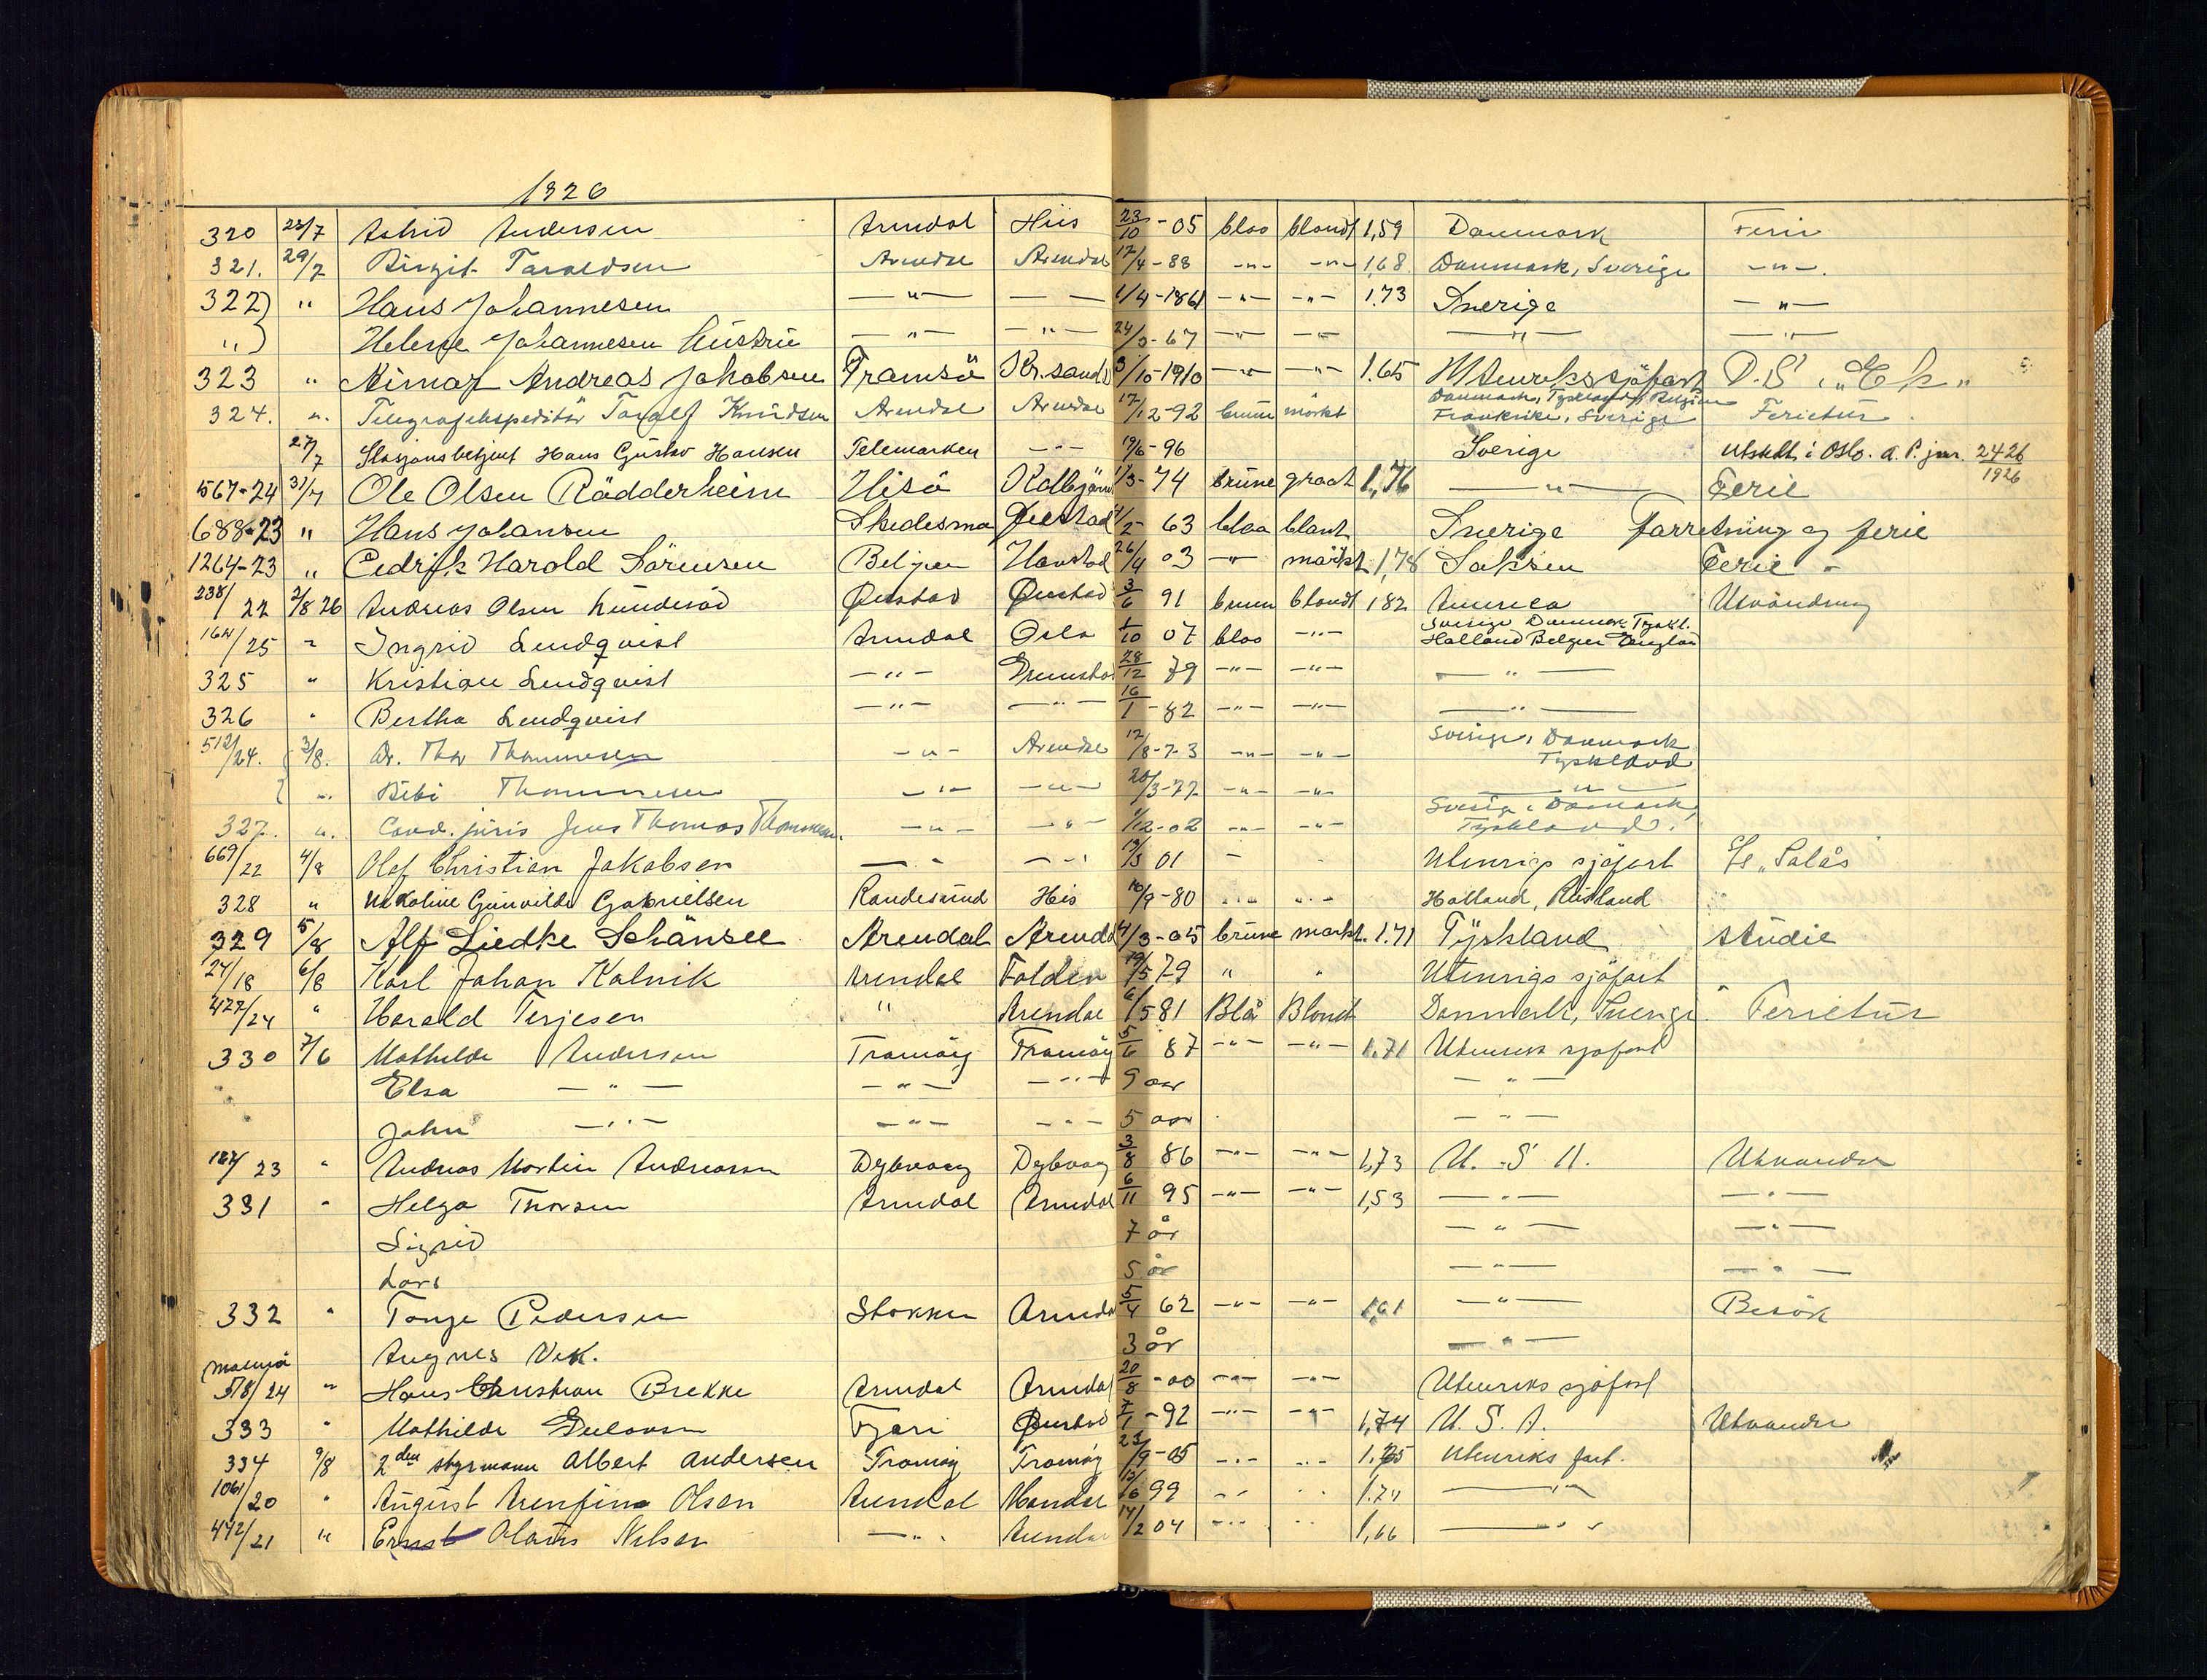 1926
320 28/7 Astrid Andersen Arendal Hiis 23/10 - 05 blaa blondt 1,59 Danmark Ferie
321. 29/7 Birgit Taraldsen Arendal Arendal 17/4-88 -"- -"- 168 Danmark, Sverige -"-.
322) " Hans Johannesen -"- - - 1/4-1861 -"- -"- 1.73 Sverige -"-
") Helene Johannesen hustru -"- -"- 24/3-67 -"- -"- -"- -"-
323 " Andreas Jakobsen Tromsö Kr.sand 3/10-1910 -"- -"- 1.65 Utenrikssjöfart D.S. "Ek"
324. ". Telegrafekspeditör Toralf Knudsen Arendal Arendal 17/12-92 brune mörkt Danmark, Tyskland, Belgien Frankrike, Sverige Ferietur
27/7 Stasjonsbetjent Hans Gustav Hansen Telemarken -"- 19/6-96 Sverige Utstedt i Oslo. a. P. jnr. 2426/1926
567-24 31/7 Ole Olsen Rödderheim Hisö Kolbjörns 1/3-74 brune graat 1,76 -"- Ferie
688-23 " Hans Johansen Skedsmo Öiestad 63 blaa blont Sverige Forretning og ferie
1264-23 " Cedrik Harold Sörensen Beljien 26/4 03 -"- mörkt 1,78 Saksen Ferie -
238/22 2/8 26 Andreas Olsen Lunderöd Öiestad Öiestad 3/6 91 brun blondt 182 America Utvandring
164/25 " Ingrid Lundqvist Arendal Oslo 1/10 07 blaa -"- Sverige Danmark Tyskl. Holland Belgien England
325 " Kristian Lundqvist -"- Grimstad 28/12 79 -"- -"- -"-
326 " Bertha Lundqvist -"- -"- 16/1 - 82 -"- -"- -"-
512/24. 3/8. Dr. Thor Thommesen -"- Arendal 17/8-73 -"- -"- Sverige, Danmark Tyskland
". Bibi Thommesen -"- -"- 20/3-77 -"- -"- -"-
327. ". Cand. juris Jens Thomas Thommesen. -"- -"- 1/12-02 -"- -"- Sverige, Danmark, Tyskland.
669/22 4/8 Olaf Christian Jakobsen -"- -"- 01 - Utenrigs sjöfart S/s "Salås"
328 " Nikoline Gunvilde Gabrielsen Randesund His 10/9-80 -"- -"- Holland, Rusland
329 5/8 Alf Liedke Schänsee Arendal Arendal 4/3-05 brune mørkt. 1.71 Tyskland Studie
24/18 6/8 Karl Johan Kalnik Arendal Folden 19/5 79 " " Utenrigs sjöfart
427/24 " Harald Terjesen " Arendal 6/5 81 Blå Blond Danmark, Sverige Ferietur
330 7/6 Mathilde Andersen Tromöy Tromöy 5/6 87 -"- -"- 1.71 Utenriks sjøfart
Elsa -"- -"- -"- 9 aar -"-
John -"- -"- -"- 5 aar -"-
167/23 " Andreas Martin Andreassen Dybvaag Dybvaag 3/8 86 -"- -"- 1,73 U. S A. Utvandre
331 " Helga Thorsen Arendal Arendal 6/11 95 -"- -"- 1,53 -"- -"-
Sigrid 7 år -"- -"-
Lars 5 år -"- -"-
332 " Tonje Pedersen Stokken Arendal 5/4 62 -"- -"- 1,61 -"- Besök
Augnes Vik. 3 år -"-
518/24 " Hans Christian Brekke Arendal Arendal 20/8 - 00 -"- -"- Utenriks sjøfart
333 " Mathilde Fjære Öiestad 7/1 - 92 -"- -"- 1,74 U. S. A. Utvandre
334 9/8 2den styrmann Albert Andersen Tromöy Tromöy 25/9-05 -"- -"- 1.75 Utenriks fart.
1061/20 " August Arenfin Olsen Arendal Mandal 13/6 99 -"- -"- 1.74 -"-
472/21 " Ernst Olaus Nilsen -"- Arendal 14/2 04 -"- -"- 1,66 -"-